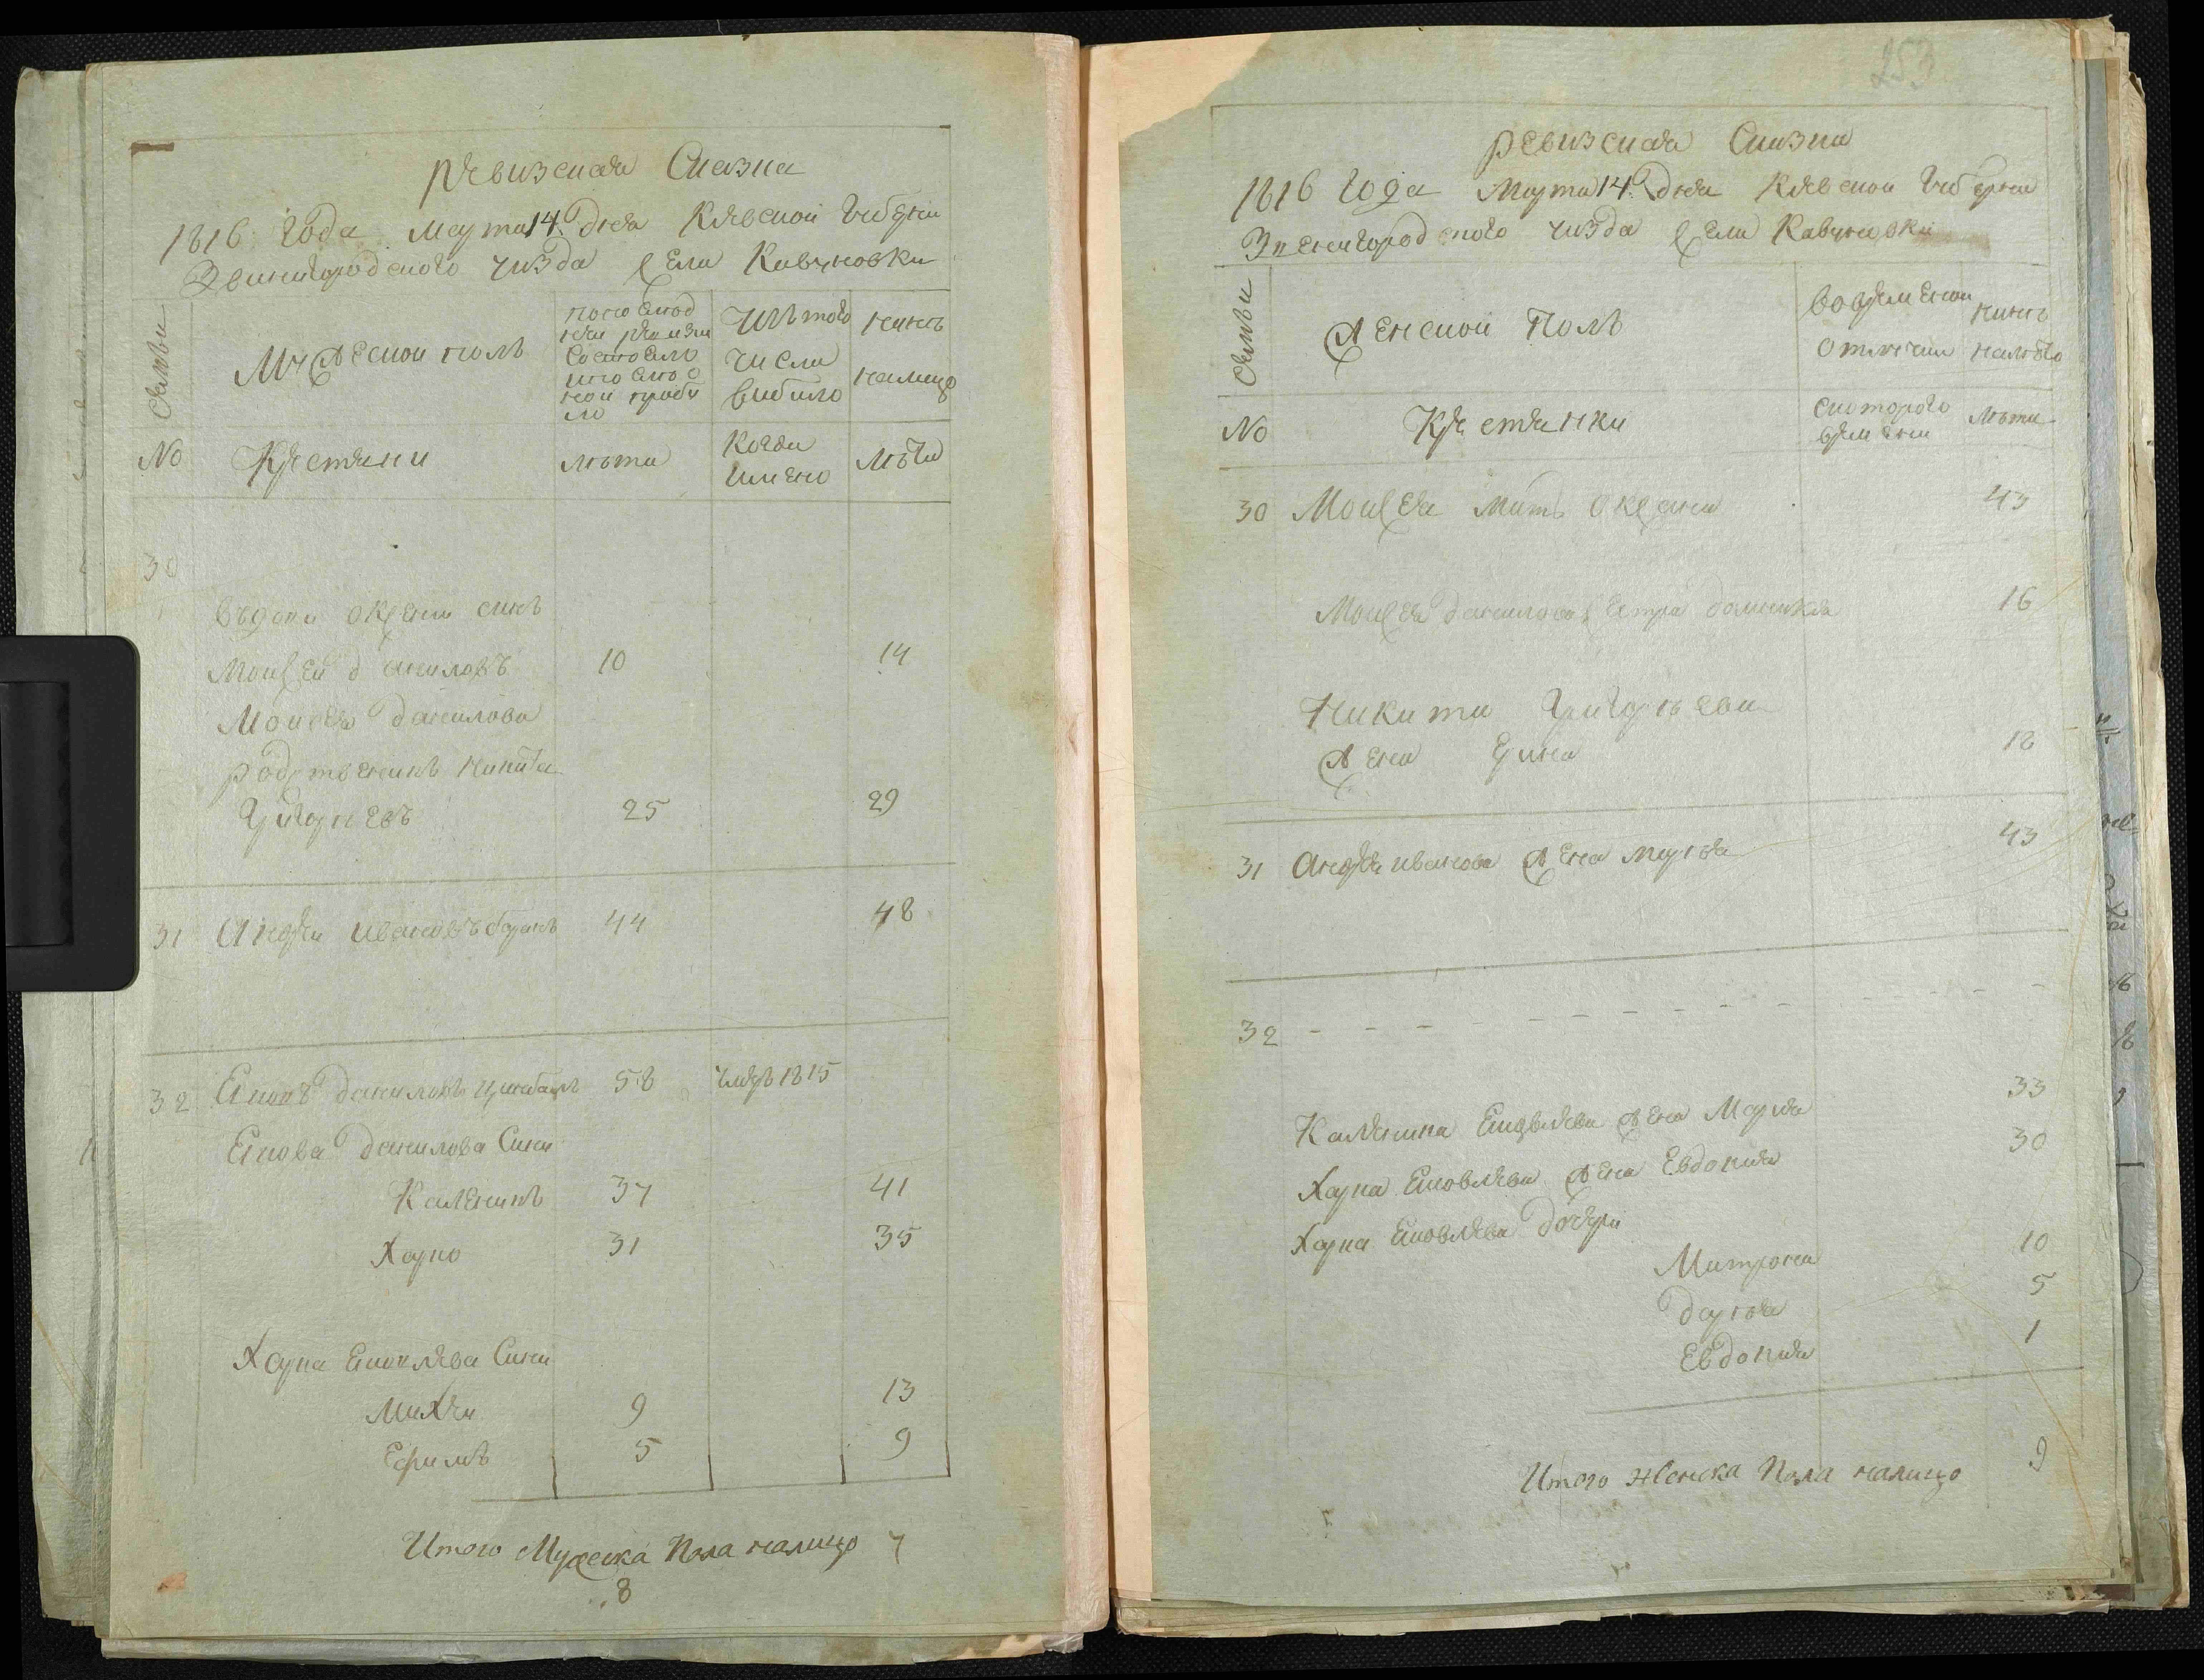 ревизская Сказка
1816 Года Марта 14. дня Киевской Губернии
Звинигородского уизда Села Кавуновки
Семьи
Мужеской полъ
по последней ревизии состояло и после оной прибыло
Изъ того числа выбило
нине налицо
No
Крестяни
лѣта
Когда имено
лѣта
30
вдови Оксени синъ
Моисей даниловъ 10 14
Моисея данилова
родственикъ Никита
Григориевъ 25 29
31 Андрей ивановъ 44 48
32 Яковъ даниловъ 58 умръ 1815
Якова данилова Сини
Каленикъ 37 41
Харко 31 35
Харка Яковлева Сини
Михей 9 13
Ефимъ 5 9
Итого Мужеска Пола налицо 7
8
253
ревизская Сказка
1816 Года Марта 14. дня Киевской Губернии
Звенигородского уизда Села Кавуновки
Семьи
Женской Полъ
во временной отлучки
нинѣ налицо
No
Крестянки
с которого времени
лѣта
30 Моисея мать Оксана 43
Моисея данилова Сестра домникия 16
Никити Григорьева
жена Ирина 18
31 Андрея иванова жена марья 43
32 - - - - - - - - - - - - -
Каленика Яковлева жена Мария 33
Харка Яковлева жена Евдокия 30
Харка Яковлева дочери
Матрона 10
дарья 5
Евдокия 1
Итого женска Пола налицо 9